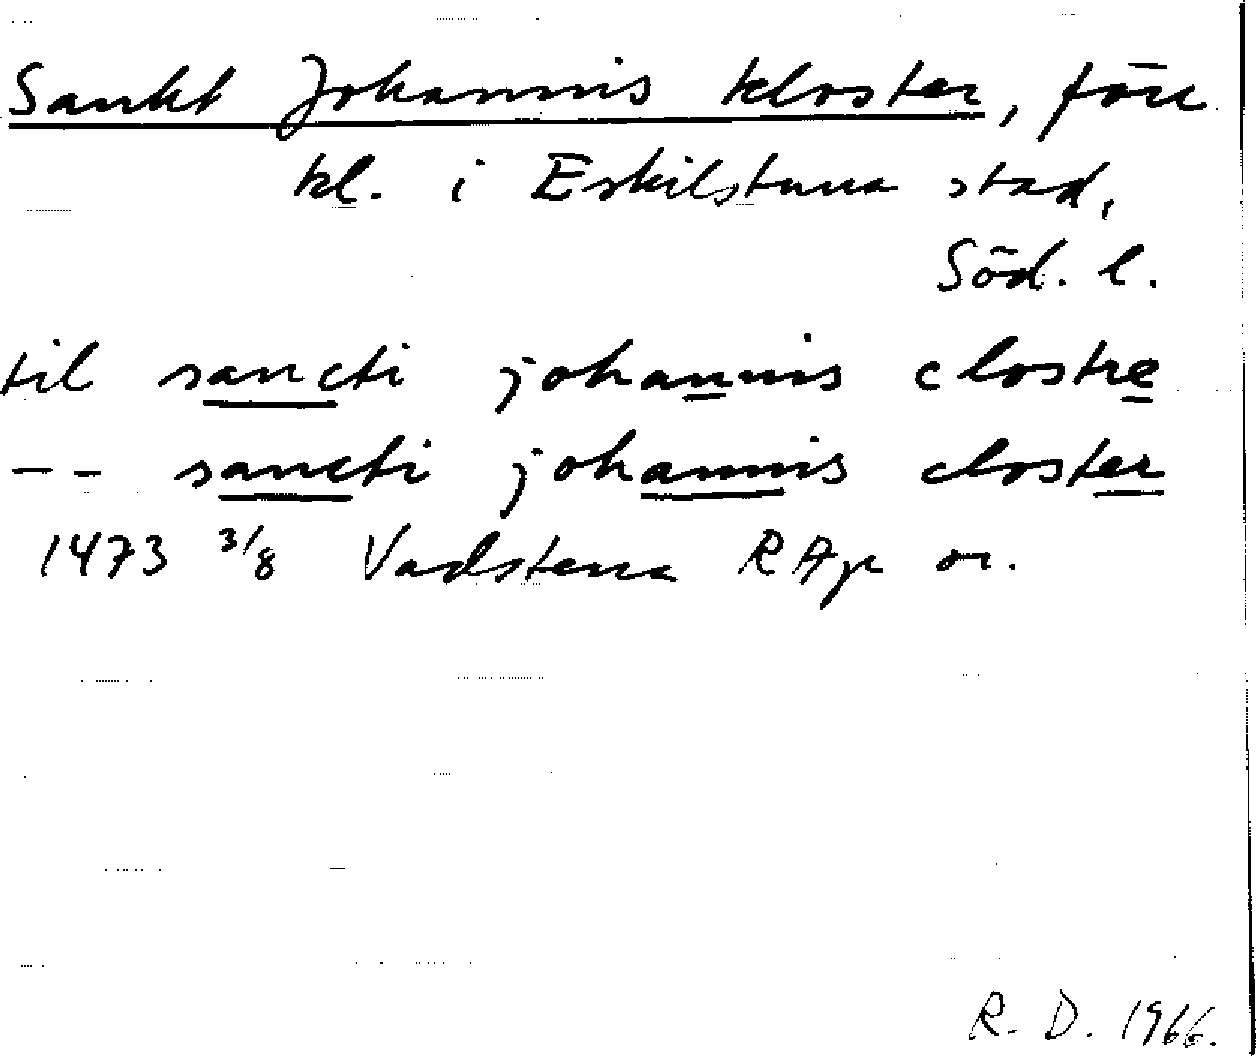 Sankt Johannis kloster, förr
kl. i Eskilstuna stad,
Söd. l.
til sancti johannis clostre
-- sancti johannis closter
1473 3/8 Vadstena RAp or.
R. D. 1966.